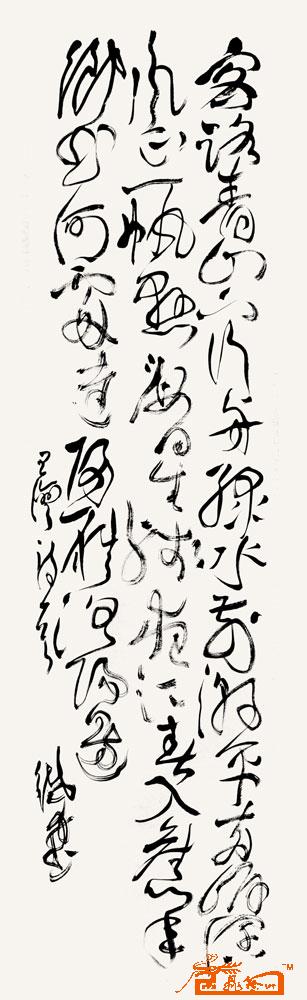 客路青山下行舟绿水前潮平两岸阔
风正一帆悬海日生残夜江春入旧年
乡书何处达归雁洛阳边
王湾诗